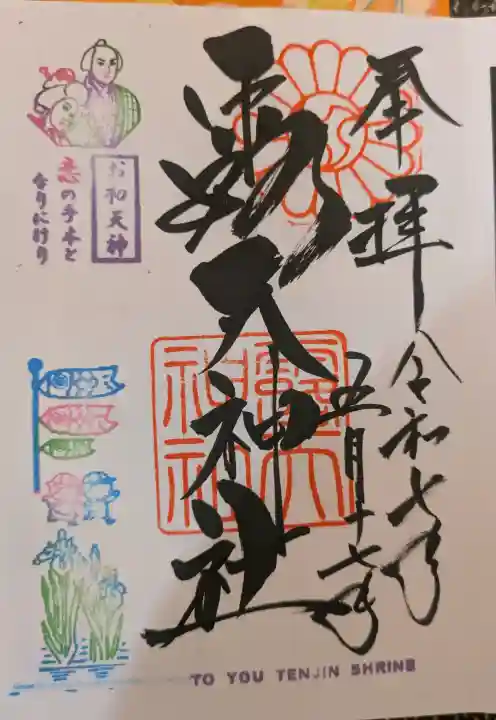 奉拝
令和七年
五月十七日
露天神社
露天
神社
お初天神
恋の手本と
なりにけり
TO YOU TENJIN SHRINE